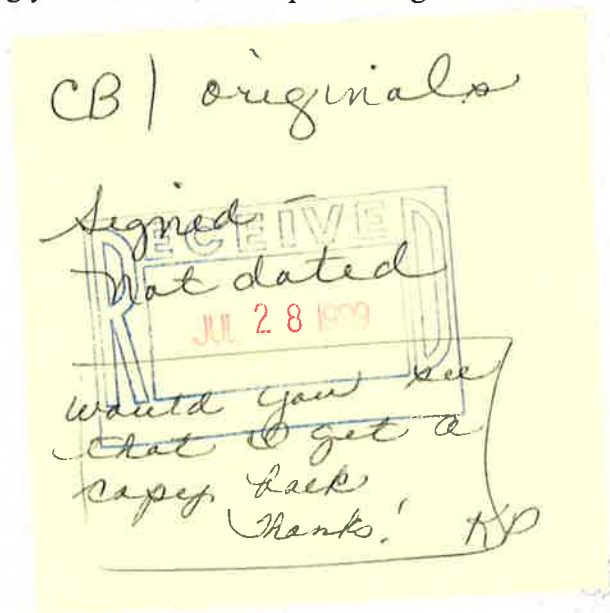 CB/ originals
Signed -
RECEIVED
not dated
JUL 28 1999
would you see
that I get a
copy back
Thanks! KP